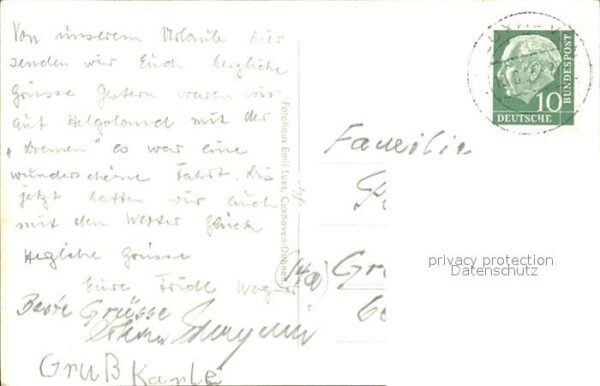 Von unserem Urlaub hier
senden wir Euch herzliche
Grüsse Gestern waren wir
auf Helgoland mit der
"Bremen" es war eine
wunderschöne Fahrt. Bis
jetzt hatten wir auch
mit dem Wetter Glück
Hezliche Grüsse
Eure Friedl
Beste Grüsse
Gruß
Fotohaus Emil Lues, Cuxhaven-Duhnen
Familie
(14a)
10
DEUTSCHE
BUNDESPOST
privacy protection
Datenschutz